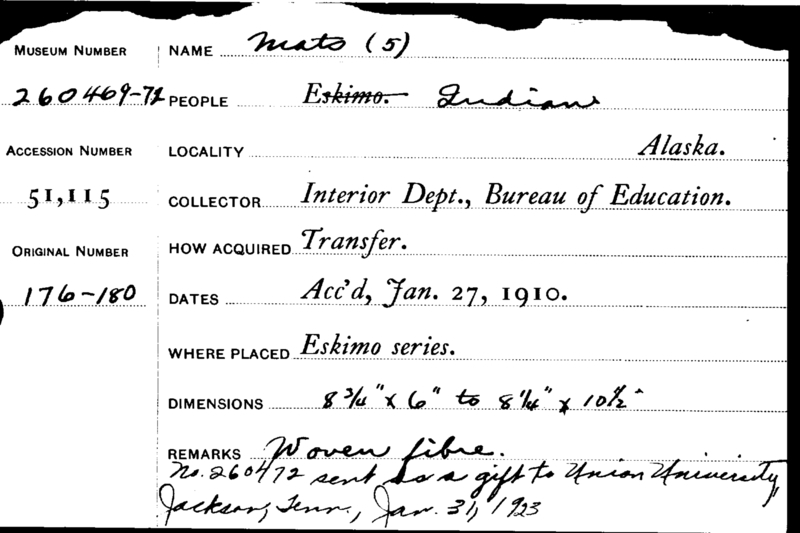 MUSEUM NUMBER
260469-72
ACCESSION NUMBER
51,115
ORIGINAL NUMBER
176-180
NAME Mats (5)
PEOPLE Eskimo. Indian
LOCALITY Alaska.
COLLECTOR Interior Dept., Bureau of Education.
HOW ACQUIRED Transfer.
DATES Acc'd, Jan. 27, 1910.
WHERE PLACED Eskimo series.
DIMENSIONS 8 3/4" x 6" to 8 1/4" x 10 1/2"
REMARKS Woven fibre.
No. 260472 sent as a gift to Union University,
Jackson, Tenn., Jan. 31, 1923